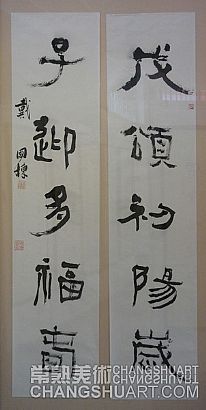 戊頌初陽歲
子迎多福壽
戴國梁
常熟美術
CHANGSHUART.COM